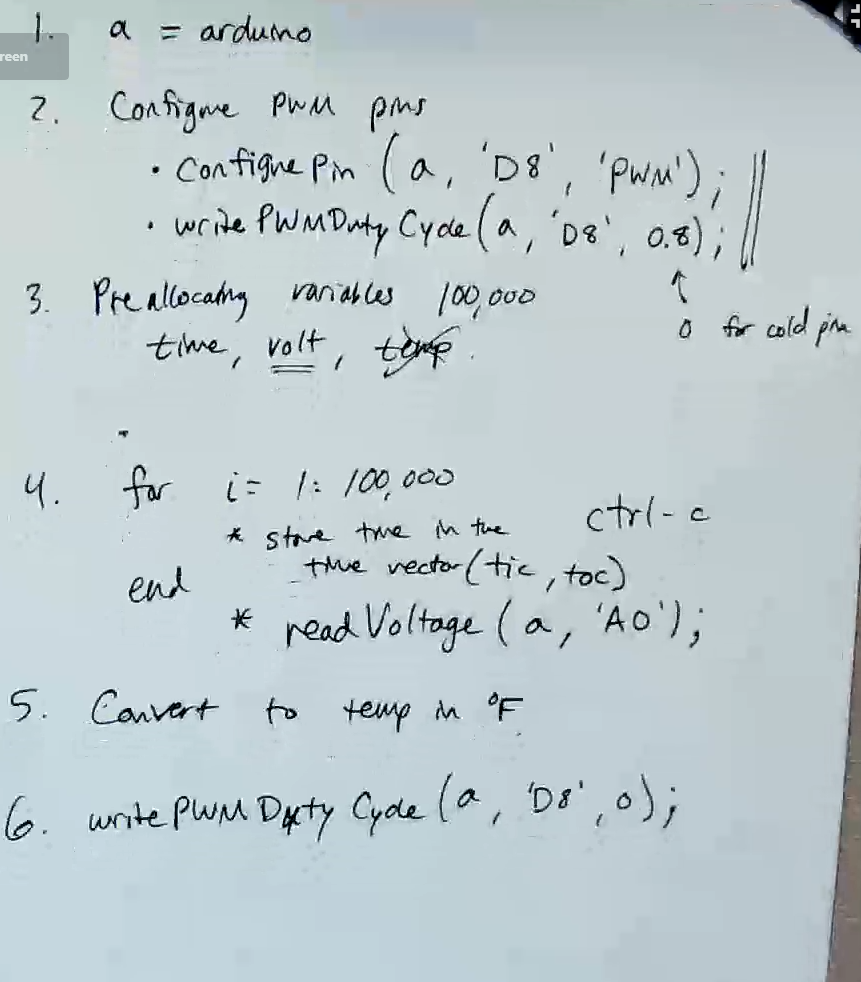 1. a = arduino
reen
2. Configure PWM pins
• Configure Pin (a, 'D8', 'PWM');
• write PWMDuty Cycle (a, 'D8', 0.8);
↑
0 for cold pin
3. Preallocating variables 100,000
time, volt, temp.
4. for i = 1: 100,000
ctrl-c
* store time in the
time vector (tic, toc)
end
* read Voltage (a, 'A0');
5. Convert to temp in °F
6. write PWM Duty Cycle (a, 'D8', 0);